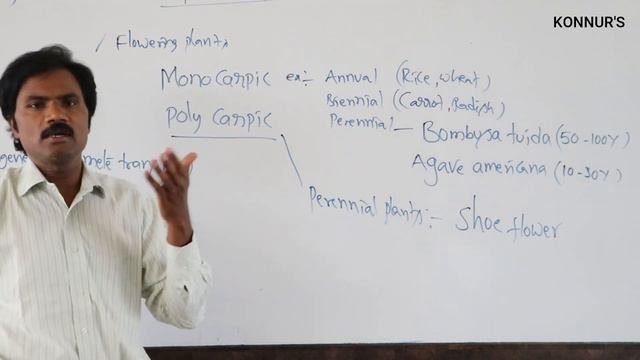 KONNUR'S
/ Flowering plants
Monocarpic ex:- Annual (Rice, wheat)
Biennial (Carrot, Radish)
Poly carpic
Perennial - Bombysa tuida (50-100Y)
Agave americana (10-30Y)
gene mete tran
Perennial plants:- Shoe flower